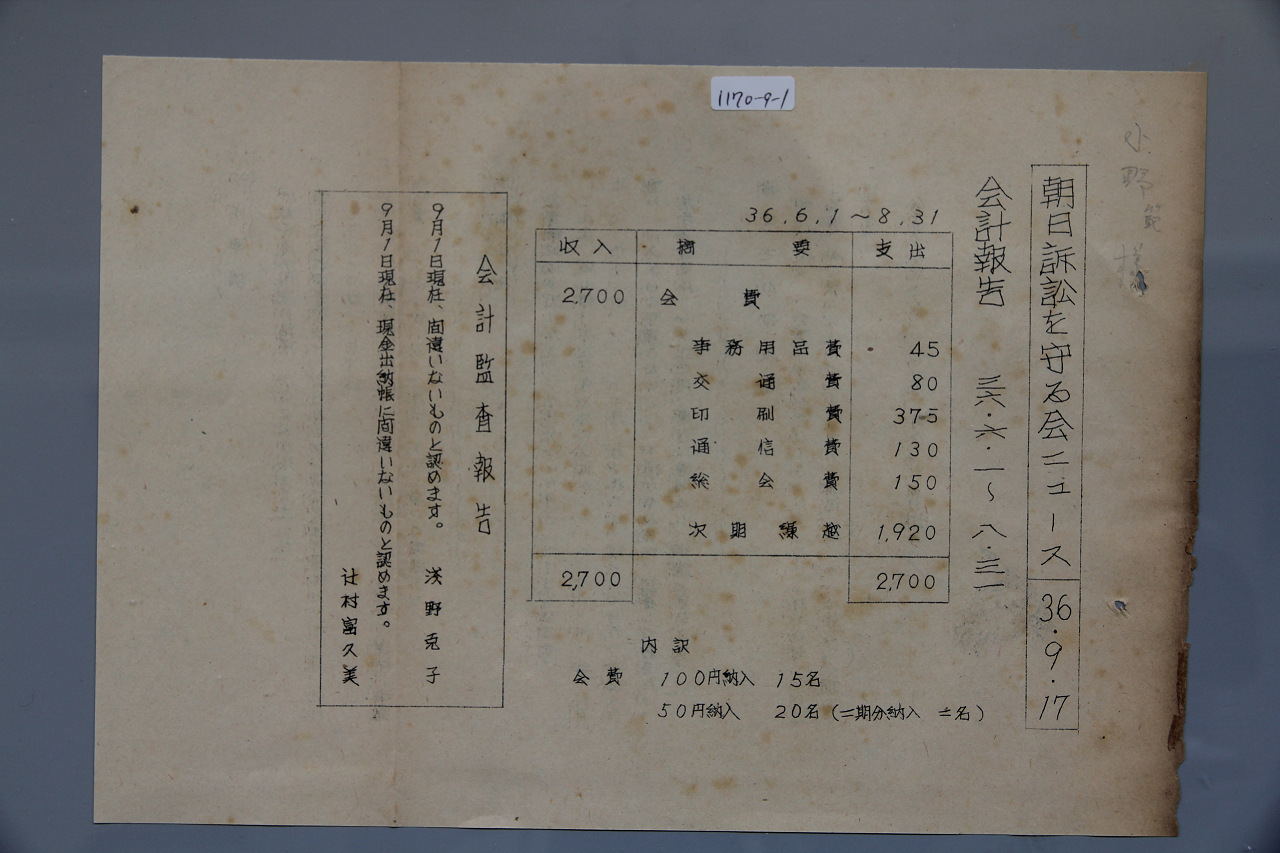 1170-9-1
小野範様
朝日訴訟を守る会ニュース 36・9・17
会計報告 三六・六・一〜八・三一
36.6.1〜8.31
収入 摘要 支出
2,700 会費
事務用品費 45
交通費 80
印刷費 375
通信費 130
総会費 150
次期繰越 1,920
2,700 2,700
内訳
会費 100円納入 15名
50円納入 20名(二期分納入 二名)
会計監査報告
9月1日現在、間違いないものと認めます。 浅野克子
9月1日現在、現金出納帳に間違いないものと認めます。
辻村富久美